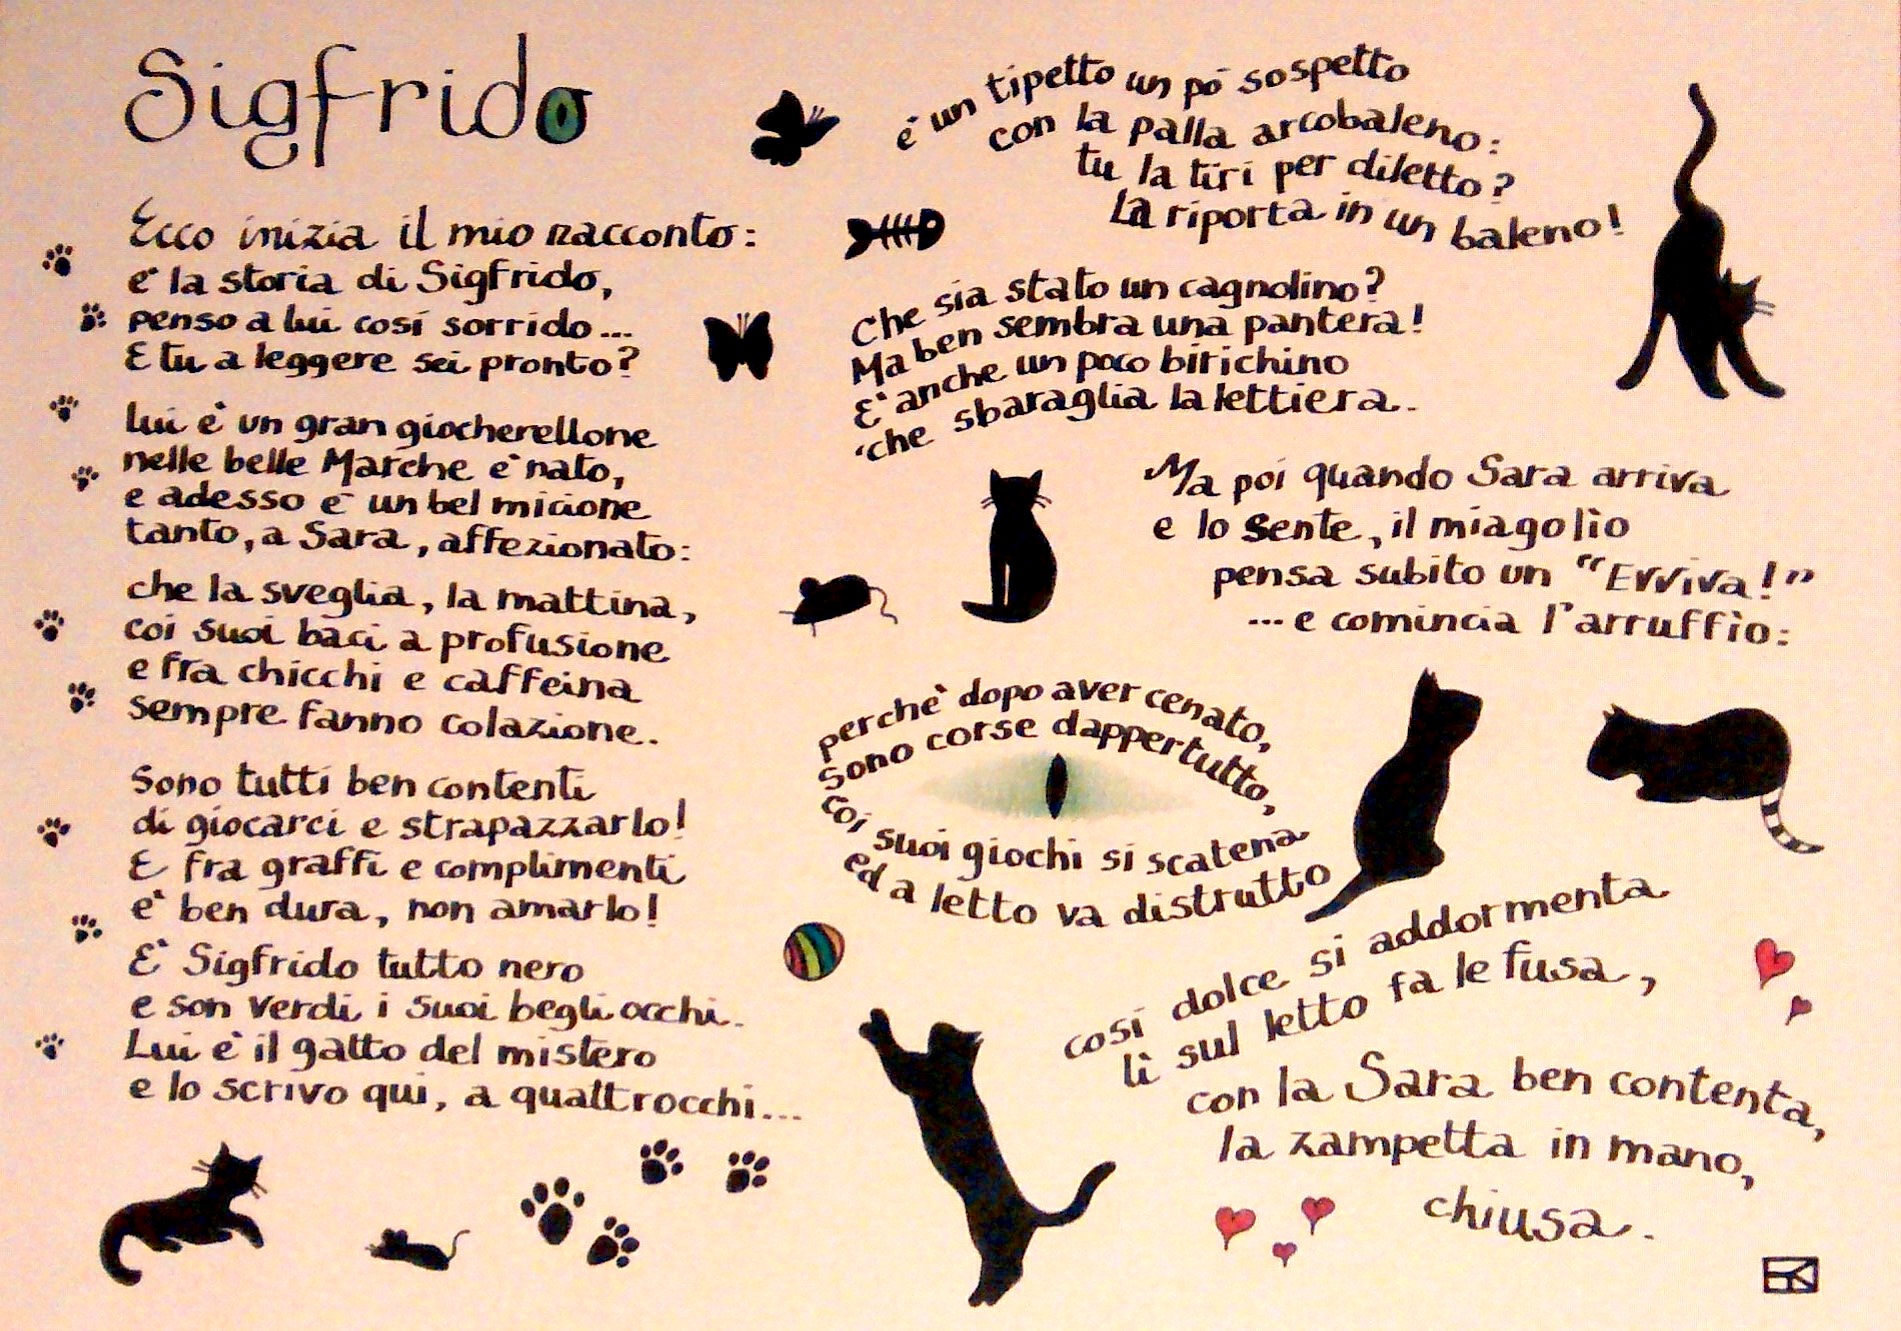 Sigfrido
Ecco inizia il mio racconto:
è la storia di Sigfrido,
penso a lui così sorrido...
E tu a leggere sei pronto?
Lui è un gran giocherellone
nelle belle Marche è nato,
e adesso è un bel micione
tanto, a Sara, affezionato:
che la sveglia, la mattina,
coi suoi baci a profusione
e fra chicchi e caffeina
sempre fanno colazione.
Sono tutti ben contenti
di giocarci e strapazzarlo!
E fra graffi e complimenti
è ben dura, non amarlo!
È Sigfrido tutto nero
e son verdi i suoi begli occhi.
Lui è il gatto del mistero
e lo scrivo qui, a quattrocchi...
è un tipetto un pò sospetto
con la palla arcobaleno:
tu la tiri per diletto?
La riporta in un baleno!
Che sia stato un cagnolino?
Ma ben sembra una pantera!
È anche un poco birichino
che sbaraglia la lettiera.
Ma poi quando Sara arriva
e lo sente, il miagolìo
pensa subito un "Evviva!"
...e comincia l'arruffìo:
perchè dopo aver cenato,
sono corse dappertutto,
coi suoi giochi si scatena
ed a letto va distrutto
così dolce si addormenta
lì sul letto fa le fusa,
con la Sara ben contenta,
la zampetta in mano,
chiusa.